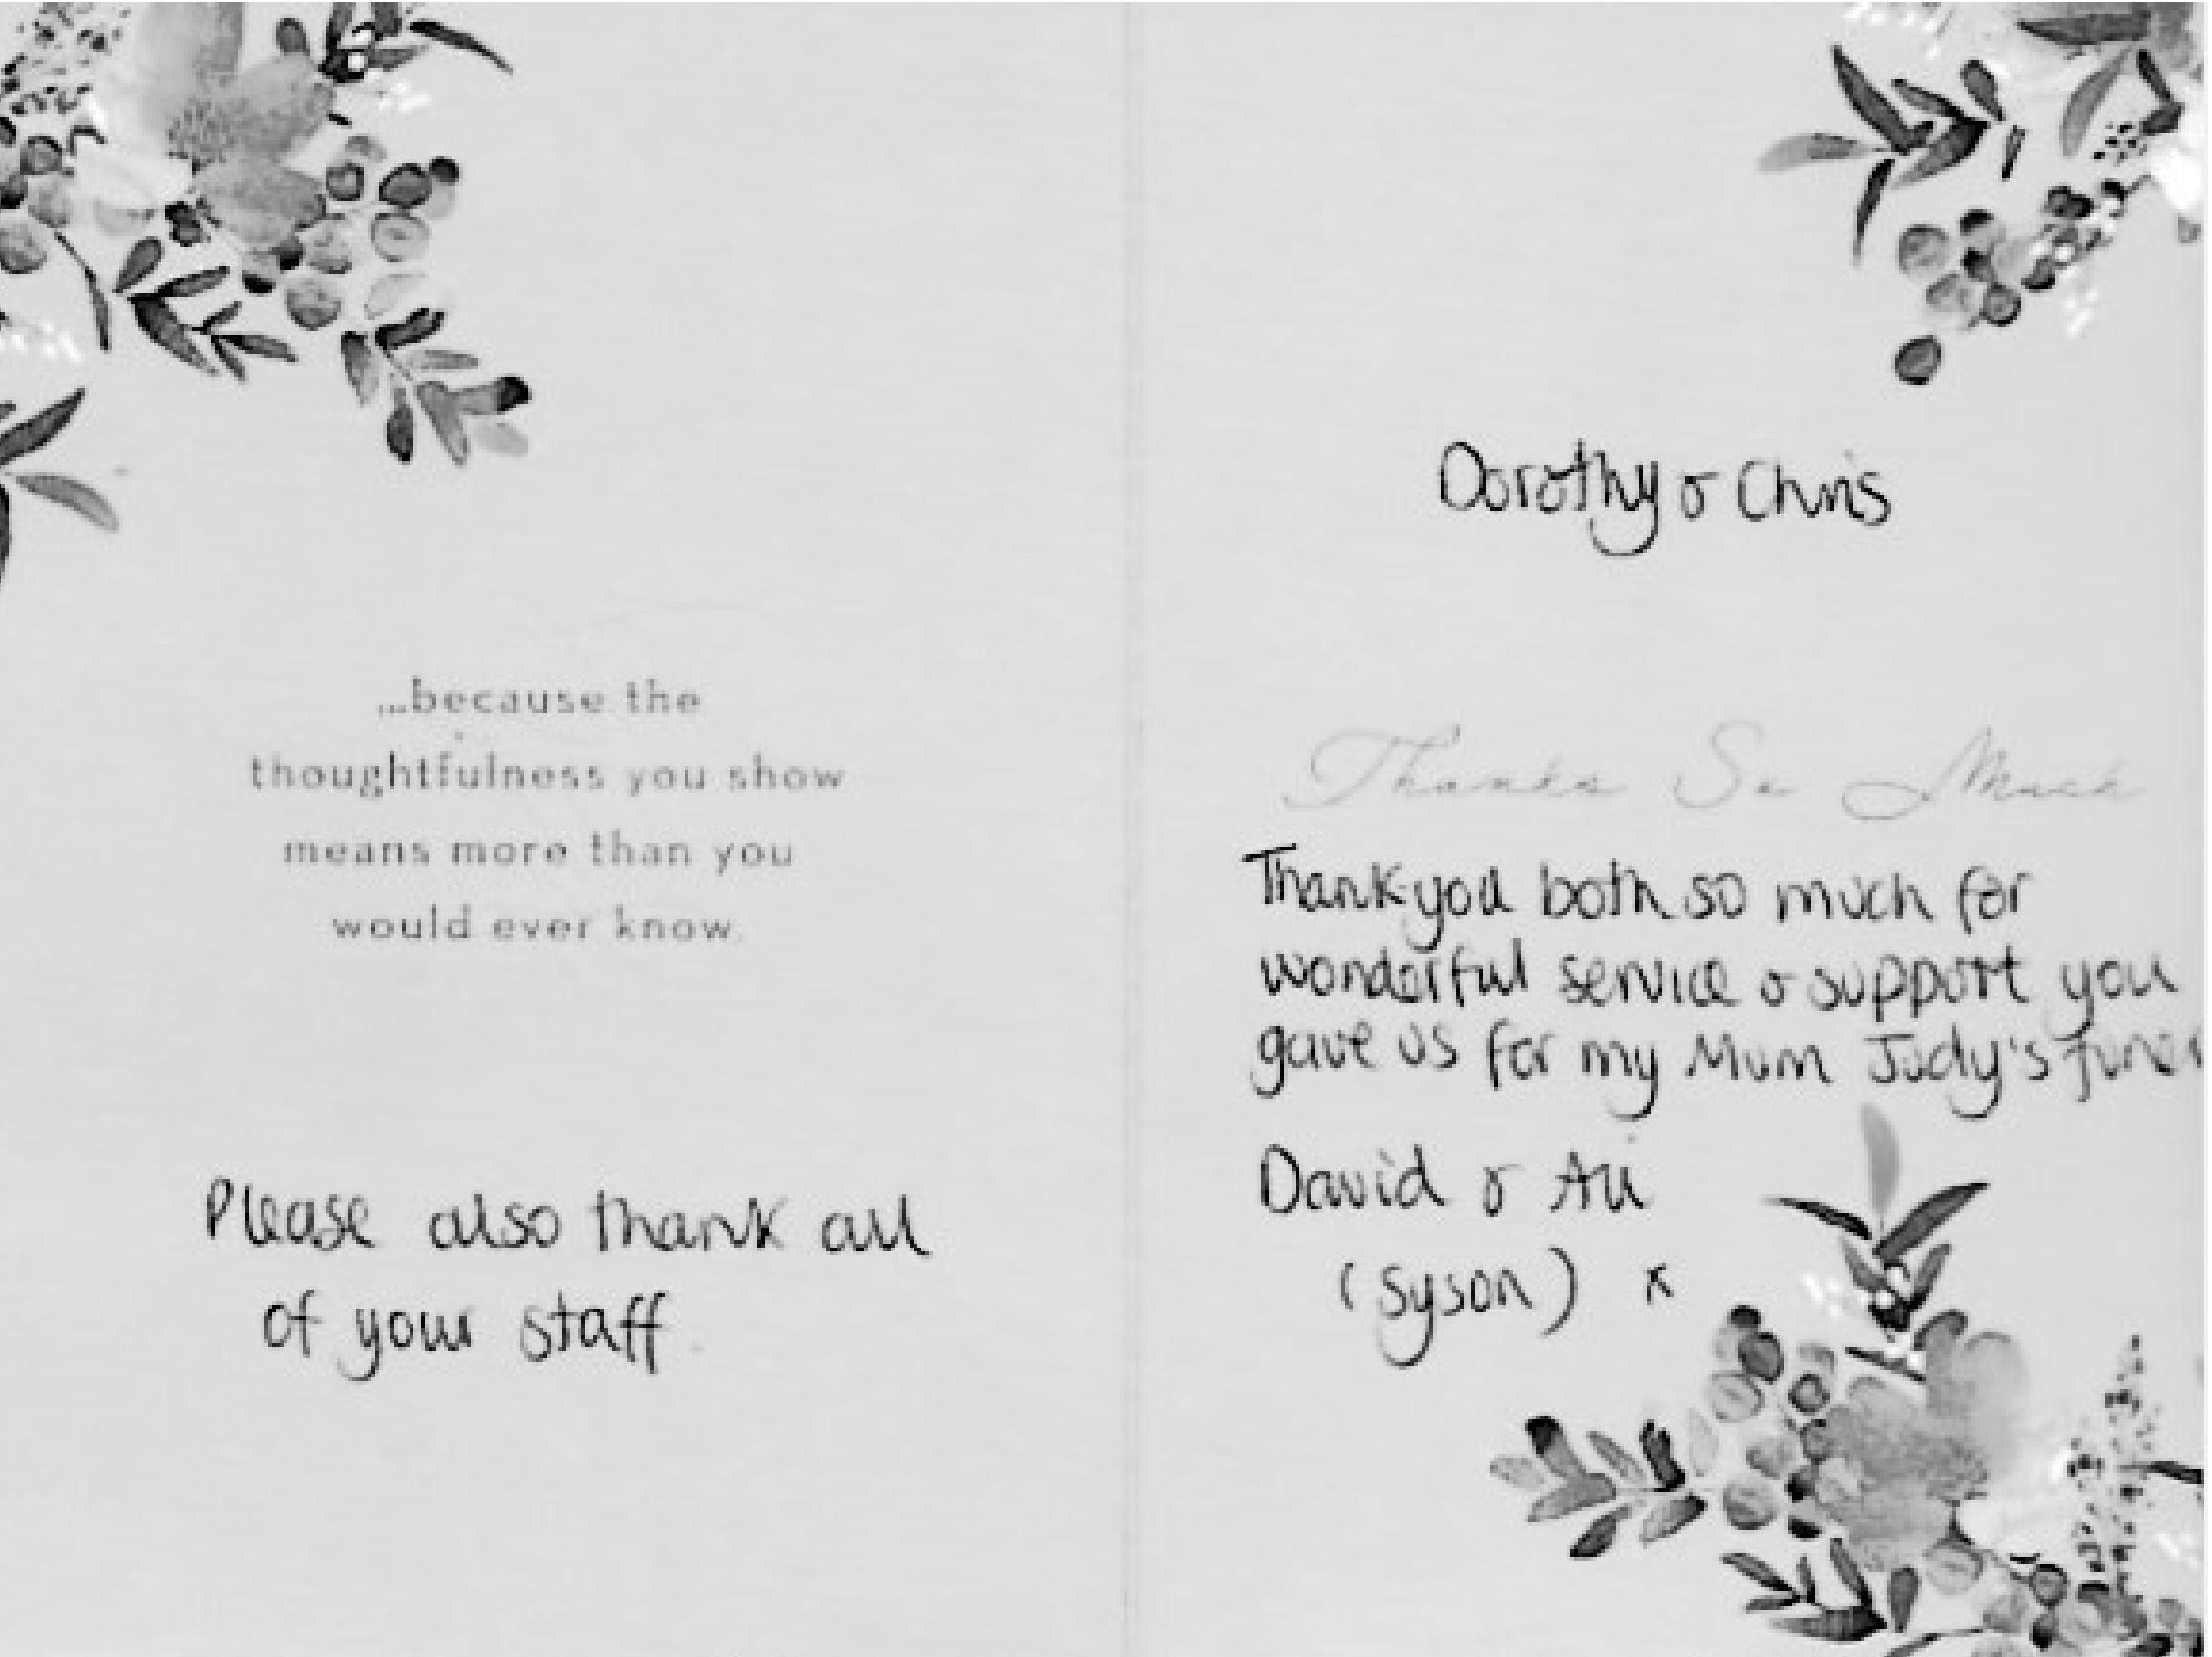 ...because the
thoughtfulness you show
means more than you
would ever know.
Please also thank all
of your staff
Dorothy & Chris
Thanks So Much
Thankyou both so much for
wonderful service & support you
gave us for my Mum Judy's funer
David & Ali
(Syson) x